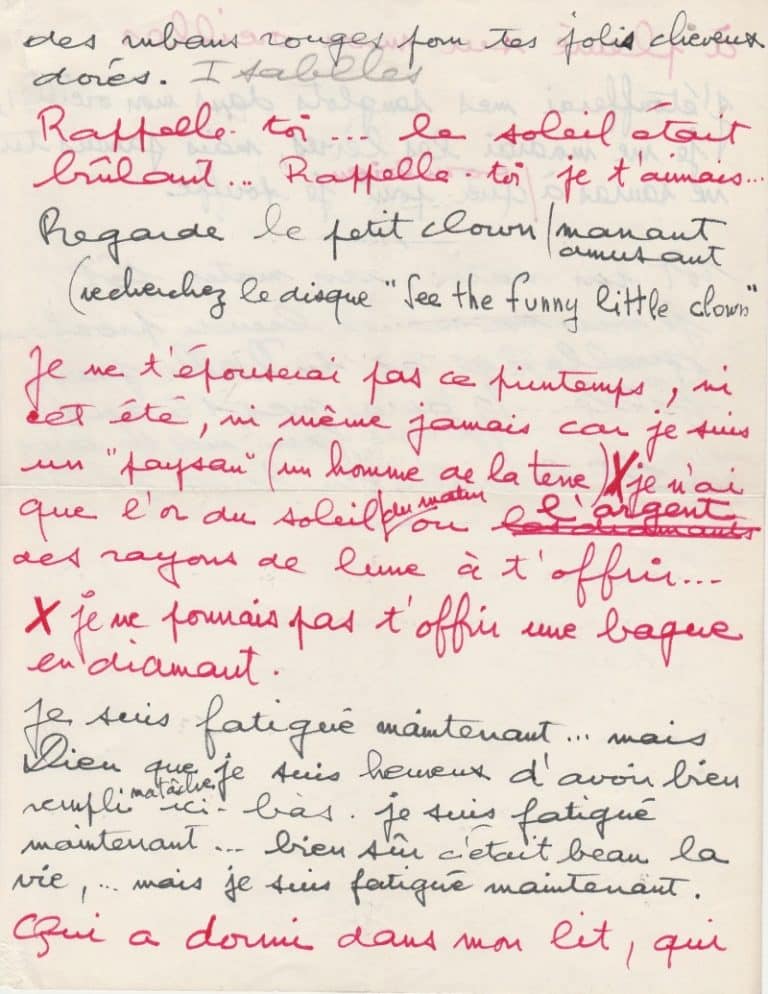 des rubans rouges pour tes jolis cheveux
dorés. Isabelles
Rappelle-toi ... le soleil était
brûlant... Rappelle-toi je t'aimais...
Regarde le petit clown / marrant
amusant
(recherchez le disque "See the funny little clown"
Je ne t'épouserai pas ce printemps, ni
cet été, ni même jamais car je suis
un "paysan" (un homme de la terre) X je n'ai
que l'or du soleil / du matin ou l'argent
les diamants
des rayons de lune à t'offrir...
X je ne pourrais pas t'offrir une bague
en diamant.
Je suis fatigué maintenant... mais
Dieu que je suis heureux d'avoir bien
rempli ma tâche ici-bas. je suis fatigué
maintenant... bien sûr c'était beau la
vie,... mais je suis fatigué maintenant.
Qui a dormi dans mon lit, qui